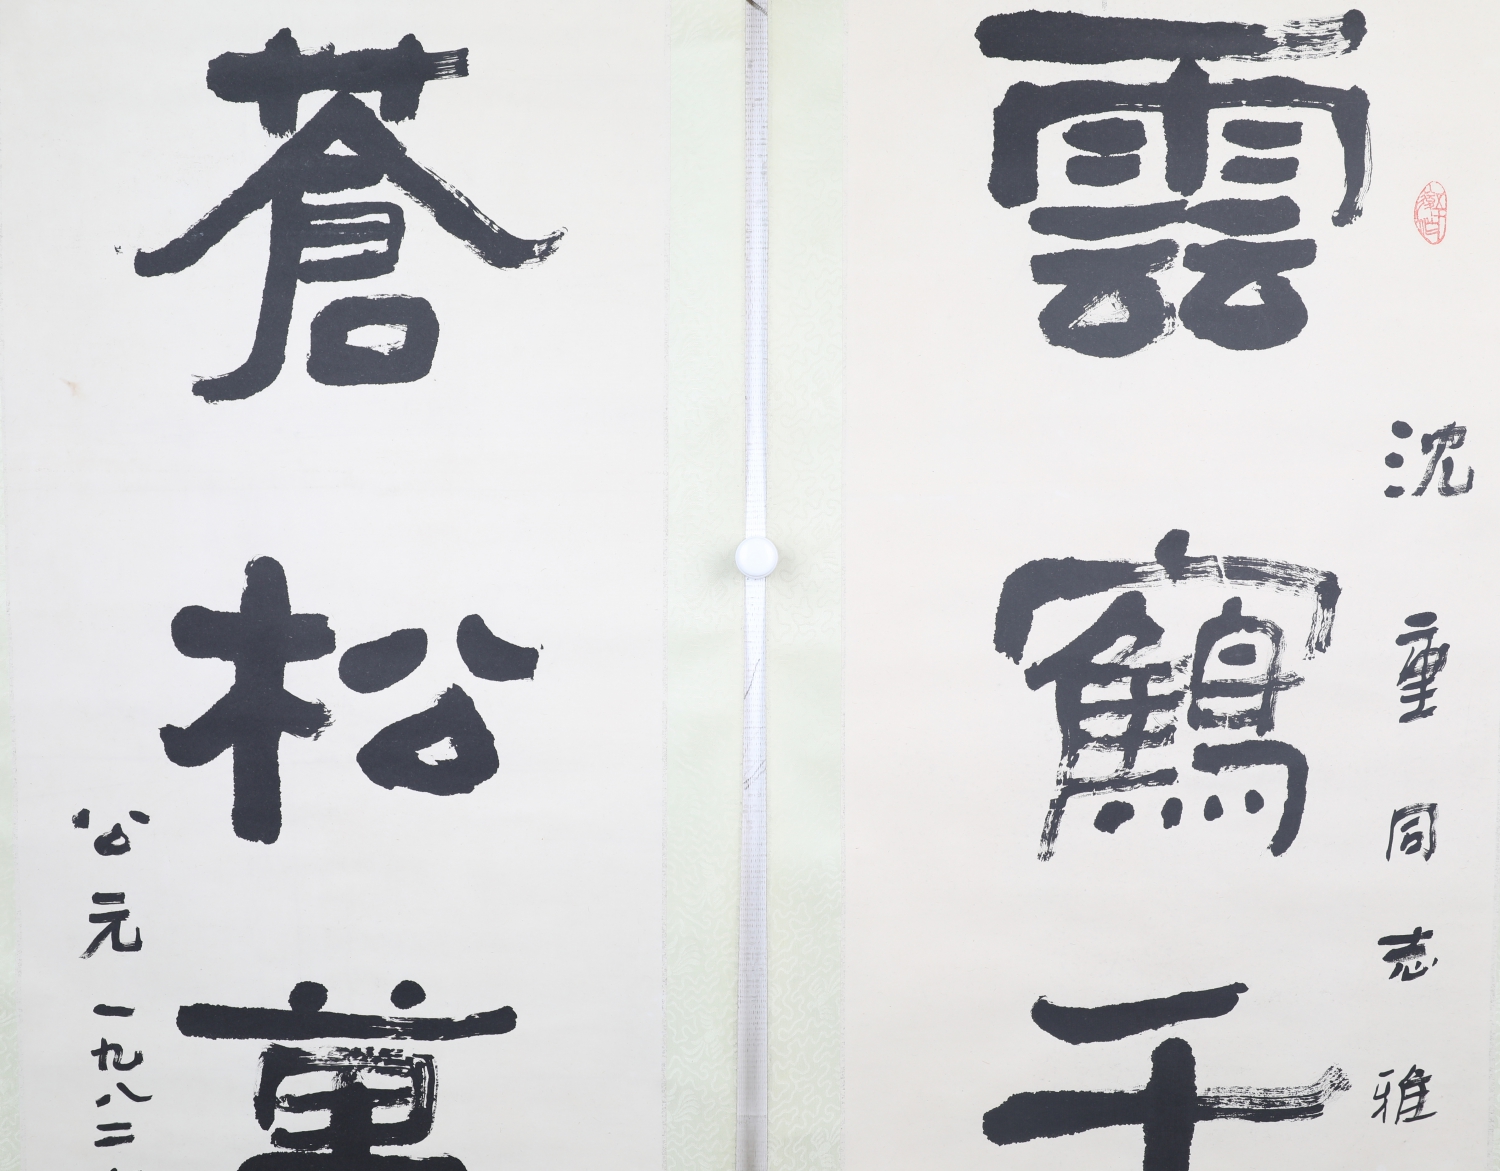 雲鶴千
沈重同志雅
蒼松萬
公元一九八二